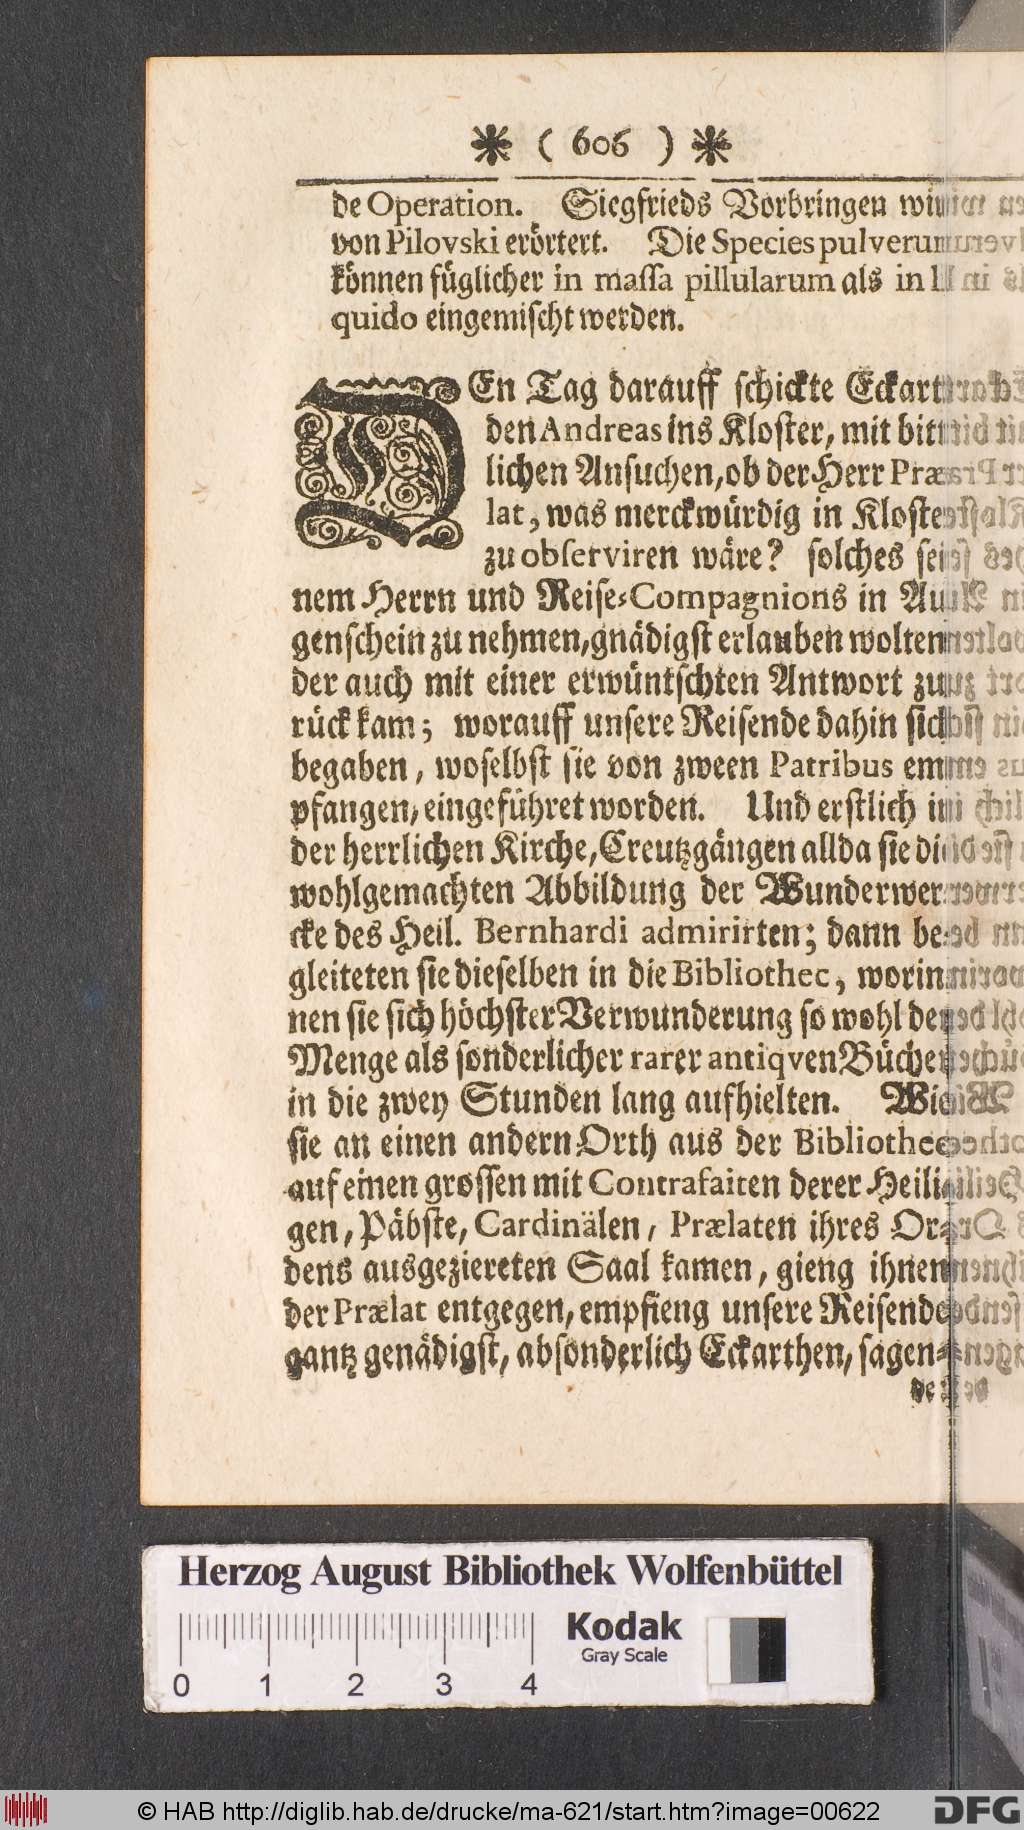 * ( 606 ) *
de Operation. Siegfrieds Vorbringen wird
von Pilovski erörtert. Die Species pulverum
können füglicher in massa pillularum als in li-
quido eingemischt werden.
DEn Tag darauff schickte Eckart
den Andreas ins Kloster, mit bitt-
lichen Ansuchen, ob der Herr Præ-
lat, was merckwürdig in Kloster
zu observiren wäre? solches sei-
nem Herrn und Reise-Compagnions in Au-
genschein zu nehmen, gnädigst erlauben wolten
der auch mit einer erwüntschten Antwort zu-
rück kam; worauff unsere Reisende dahin sich
begaben, woselbst sie von zween Patribus em-
pfangen, eingeführet worden. Und erstlich in
der herrlichen Kirche, Creutzgängen allda sie die
wohlgemachten Abbildung der Wunderwer-
cke des Heil. Bernhardi admirirten; dann be-
gleiteten sie dieselben in die Bibliothec, worin-
nen sie sich höchster Verwunderung so wohl der
Menge als sonderlicher rarer antiqven Bücher
in die zwey Stunden lang aufhielten. Wie
sie an einen andern Orth aus der Bibliothec
auf einen grossen mit Contrafaiten derer Heili-
gen, Päbste, Cardinälen, Prælaten ihres Or-
dens ausgeziereten Saal kamen, gieng ihnen
der Prælat entgegen, empfieng unsere Reisende
gantz genädigst, absonderlich Eckarthen, sagen-
de
Herzog August Bibliothek Wolfenbüttel
Kodak
Gray Scale
0 1 2 3 4
© HAB http://diglib.hab.de/drucke/ma-621/start.htm?image=00622
DFG